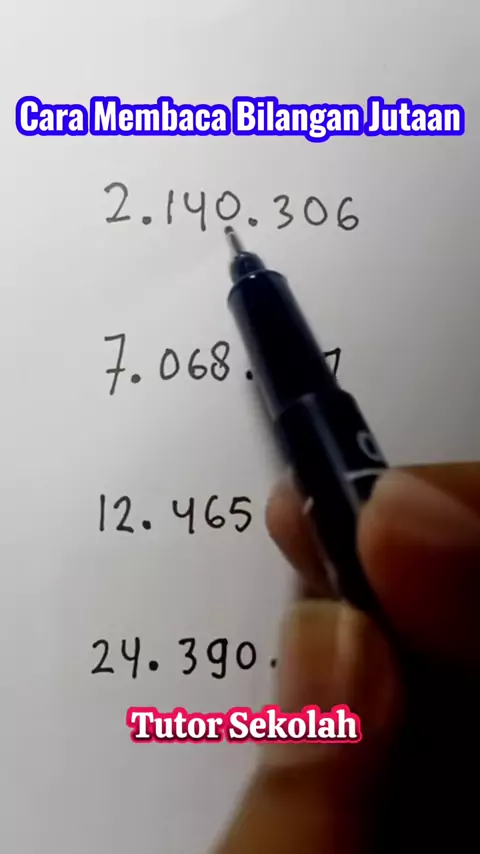 Cara Membaca Bilangan Jutaan
2.140.306
7.068.
12.465
24.390.
Tutor Sekolah